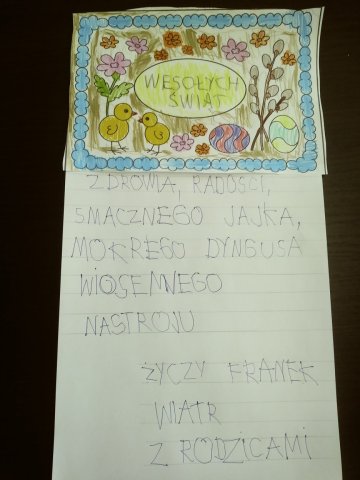 WESOŁYCH
ŚWIĄT
ZDROWIA, RADOŚCI,
SMACZNEGO JAJKA,
MOKREGO DYNGUSA
WIOSENNEGO
NASTROJU
ŻYCZY FRANEK
WIATR
Z RODZICAMI